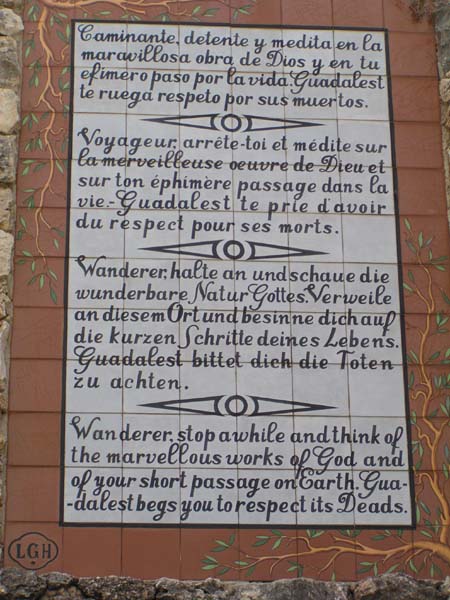 Caminante, detente y medita en la
maravillosa obra de Dios y en tu
efímero paso por la vida. Guadalest
te ruega respeto por sus muertos.
Voyageur, arrête-toi et médite sur
la merveilleuse oeuvre de Dieu et
sur ton éphimère passage dans la
vie.- Guadalest te prie d'avoir
du respect pour ses morts.
Wanderer, halte an und schaue die
wunderbare Natur Gottes. Verweile
an diesem Ort und besinne dich auf
die kurzen Schritte deines Lebens.
Guadalest bittet dich die Toten
zu achten.
Wanderer, stop awhile and think of
the marvellous works of God and
of your short passage on Earth. Gua-
dalest begs you to respect its Deads.
LGH